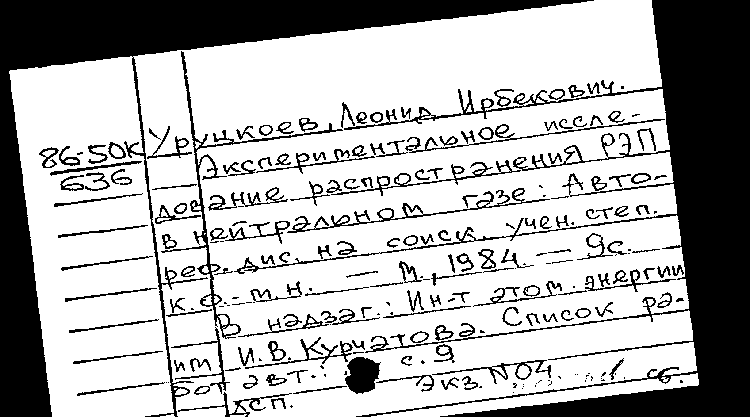 86-50К
636
Уруцкоев, Леонид Ирбекович.
Экспериментальное иссле-
дование распространения РЭП
в нейтральном газе: Авто-
реф. дис. на соиск. учен. степ.
к.ф.-м.н. — М, 1984 — 9с.
В надзаг.: Ин-т атом. энергии
им. И.В. Курчатова. Список ра-
бот авт.: с. 9
ДСП. Экз. №04 сб.